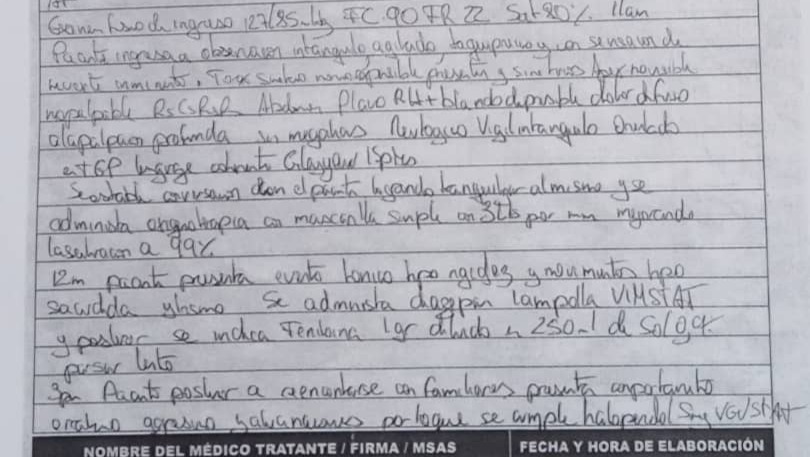 Examen fisico de ingreso 127/85 mmHg FC 90 FR 22 Sat 80% llam
Paciente ingresa a observacion intangulo agitado taquipneico y con sensacion de
muerte inminente. Torax simetrico normoexpansible presentes y simetricos Apex no visible
no palpable RsCsRsRs Abdomen Plano RHA+ blando depresible dolor difuso
a la palpacion profunda sin megalias Neurologico Vigil intangulo Orientado
en TEP lenguaje coherente Glasgow 15ptos
Se entabla conversacion con el paciente logrando tranquilizar al mismo y se
administra oxigenoterapia con mascarilla simple con 3Lts por min mejorando
la saturacion a 99%
12m paciente presenta evento tonico tipo rigidez y movimientos tipo
sacudida y mismo Se administra diazepan 1 ampolla VIM STAT
y posterior se indica Fenitoina 1gr diluido en 250ml de Sol 0,9%
pasar lento
3pm Paciente posterior a encontrarse con familiares presenta comportamiento
agresivo y alucinaciones por lo que se cumple haloperidol 5mg STAT
NOMBRE DEL MÉDICO TRATANTE / FIRMA / MSAS FECHA Y HORA DE ELABORACIÓN